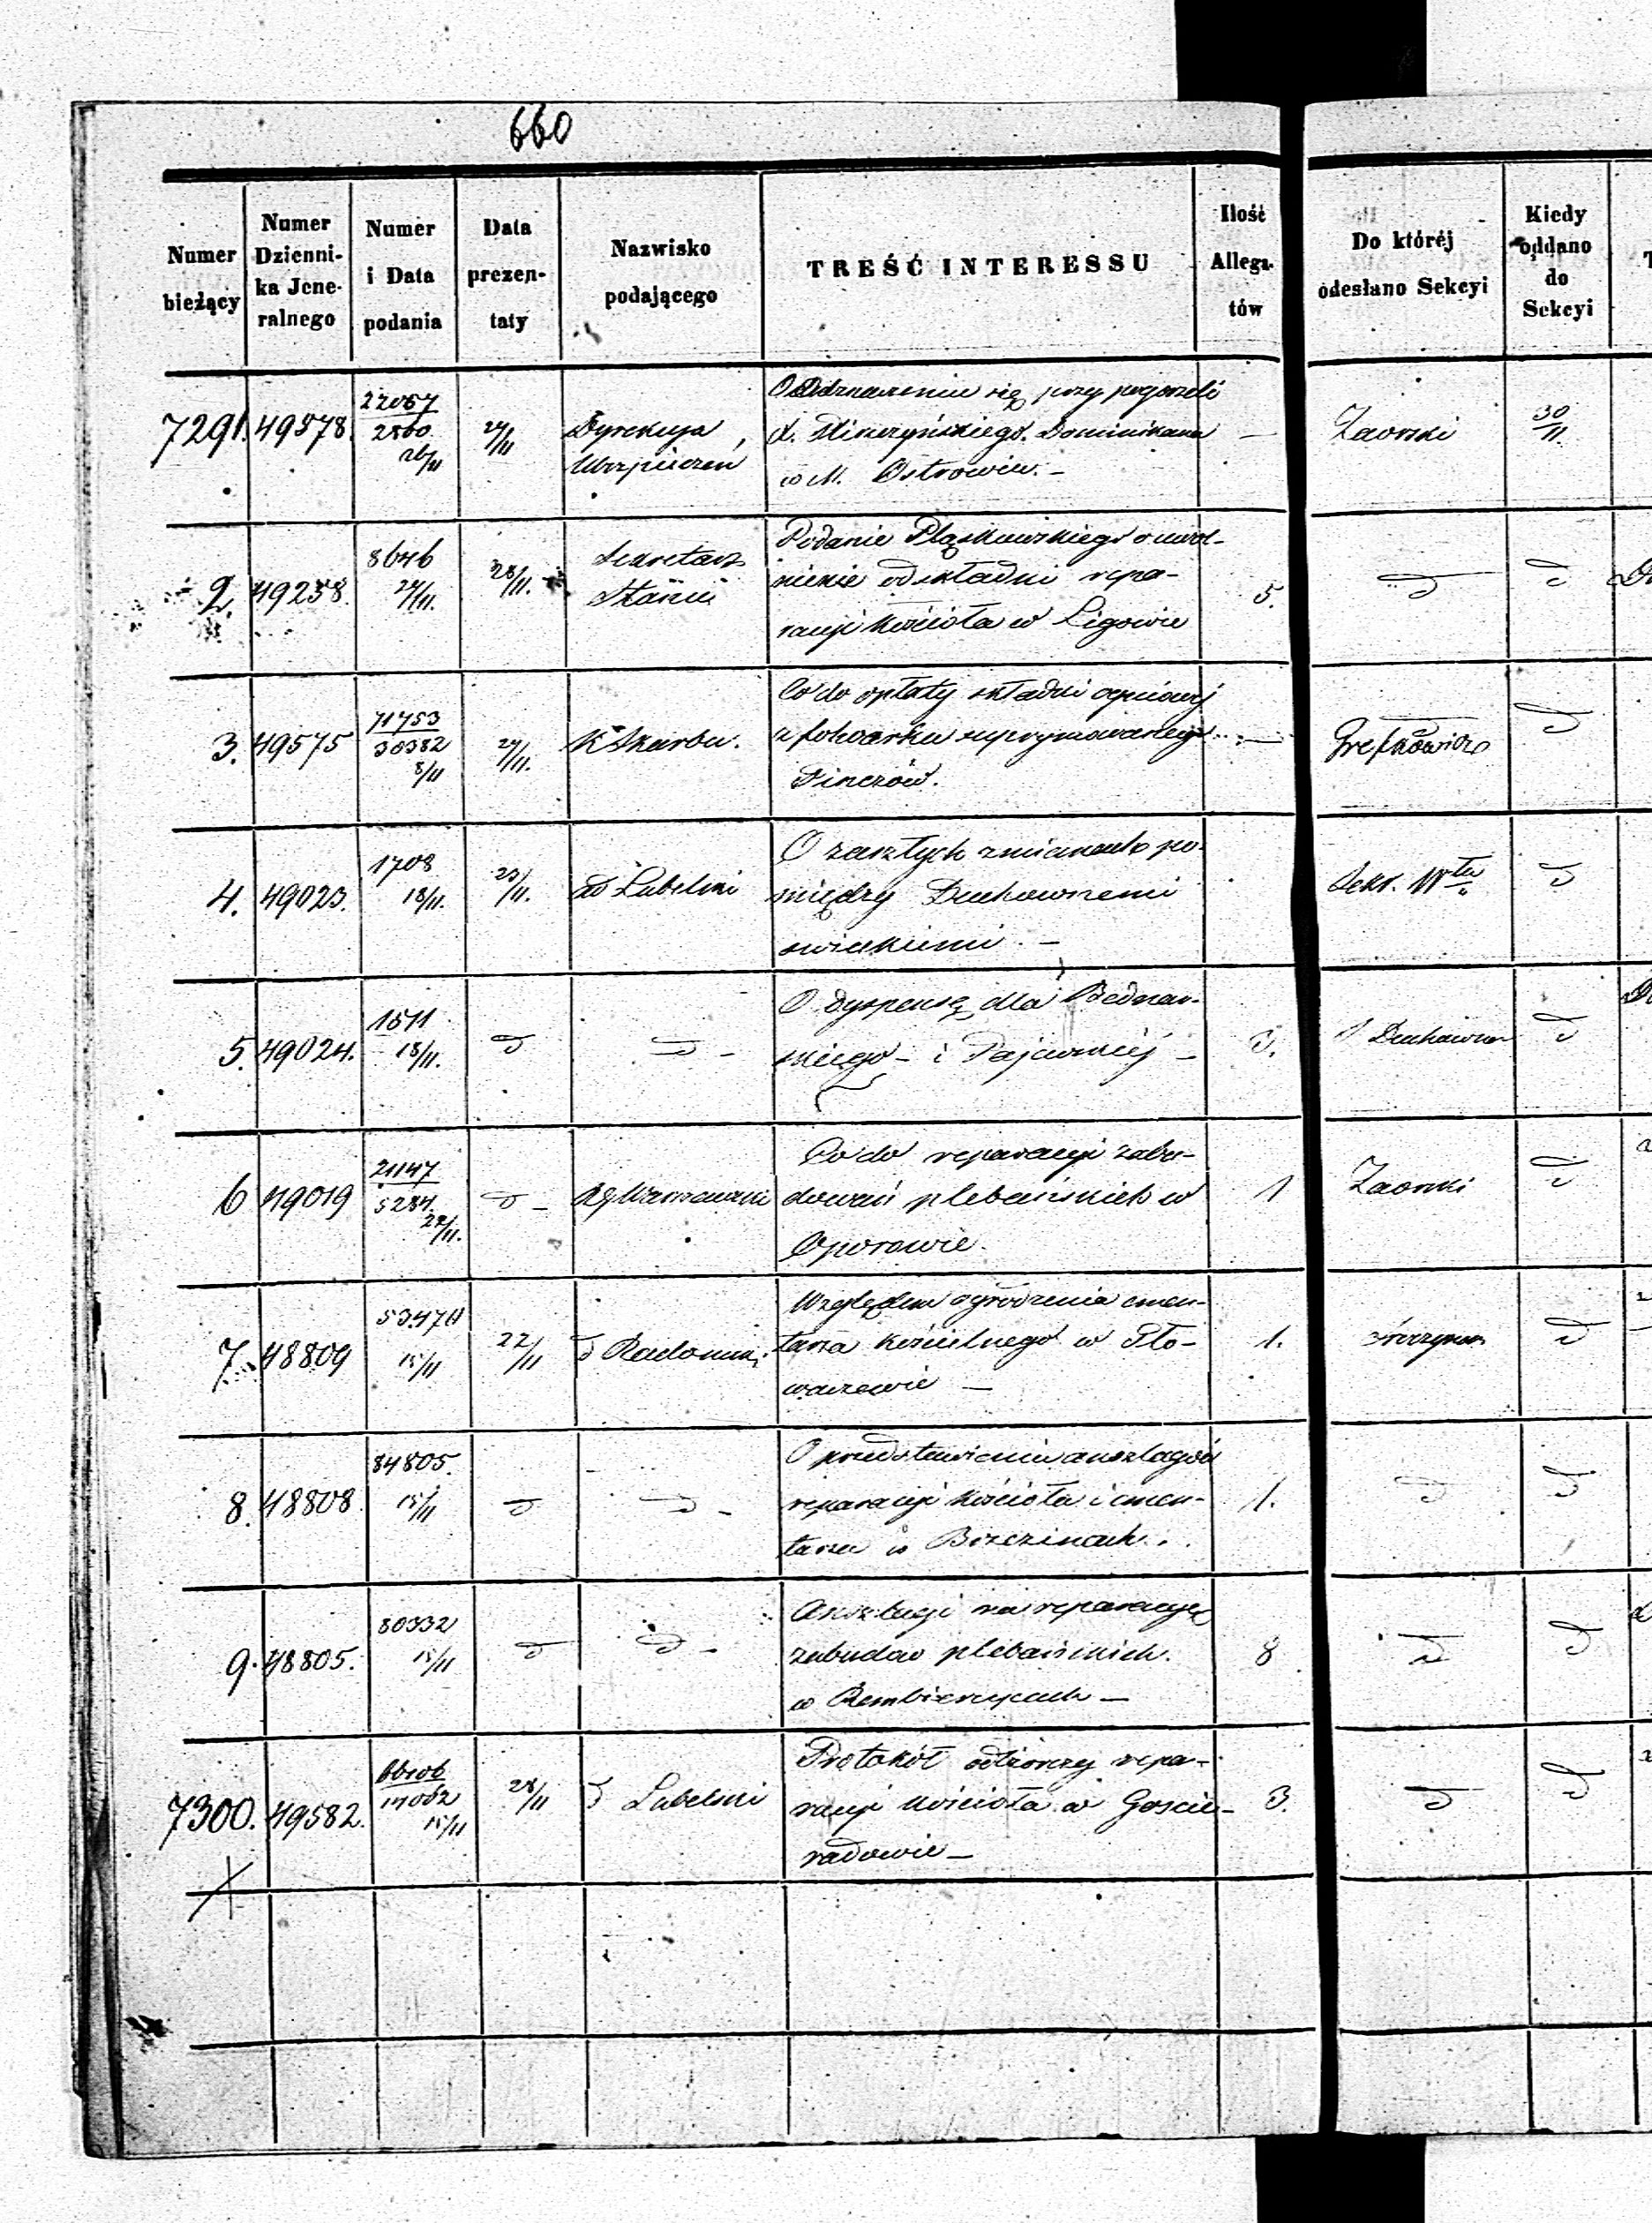 660
Numer bieżący
Numer Dzienni-ka Jene-ralnego
Numer i Data podania
Data prezen-taty
Nazwisko podającego
TREŚĆ INTERESSU
Ilość Allega-tów
Do któréj odesłano Sekcyi
Kiedy oddano do Sekcyi
7291. 49578. 22057 2560 26/11 27/11 Dyrekcya Ubezpieczeń
O Odznaczeniu się przy pogorzeli
X. Dominikana
w M. Ostrowiu. — — Zaorski 30/11.
2. 49238. 8646 27/11. 28/11. Sekretarz Stanu
Podanie Pląskowskiego o uwol-
nienie od składki repa-
racyi kościoła w Ligowie 5. d d
3. 49575 71753 30382 8/11 27/11. K. Skarbu.
Co do opłaty składki ogniowej
z folwarku
Pinczów. — d
4. 49023. 1708 18/11. 23/11. Lubelski
O zaszłych zmianach po-
między Duchownemi
świeckiemi. — Sekr. Wła d
5. 49024. 1511 18/11. d d -
O dyspensę dla Bednar-
skiego - i Pajewskiéj - 3. Duchowna d
6 49019 21147 5284. 22/11. d - Rg Warszawski
Co do reparacyi zabu-
dowań plebańskich w
Oporowie. 1 Zaorski d
7. 48809 53470 15/11 22/11 d Radomski
Względem ogrodzenia cmen-
tarza kościelnego w Gło-
waczewie — 1. d
8. 48808. 84805. 15/11 d d -
O przedstawieniu anszlagów
reparacyi kościoła i cmen-
tarza w Brzezinach. 1. d d
9. 48805. 80332 15/11 d d -
Anszlagi na reparacyę
zabudow plebańskich.
w Rembieszycach — 8 d d
7300. 49582. 66106 17062 15/11 28/11 d Lubelski
Protokół odbiorczy repa-
racyi kościoła w Goscie-
radowie — 3. d d